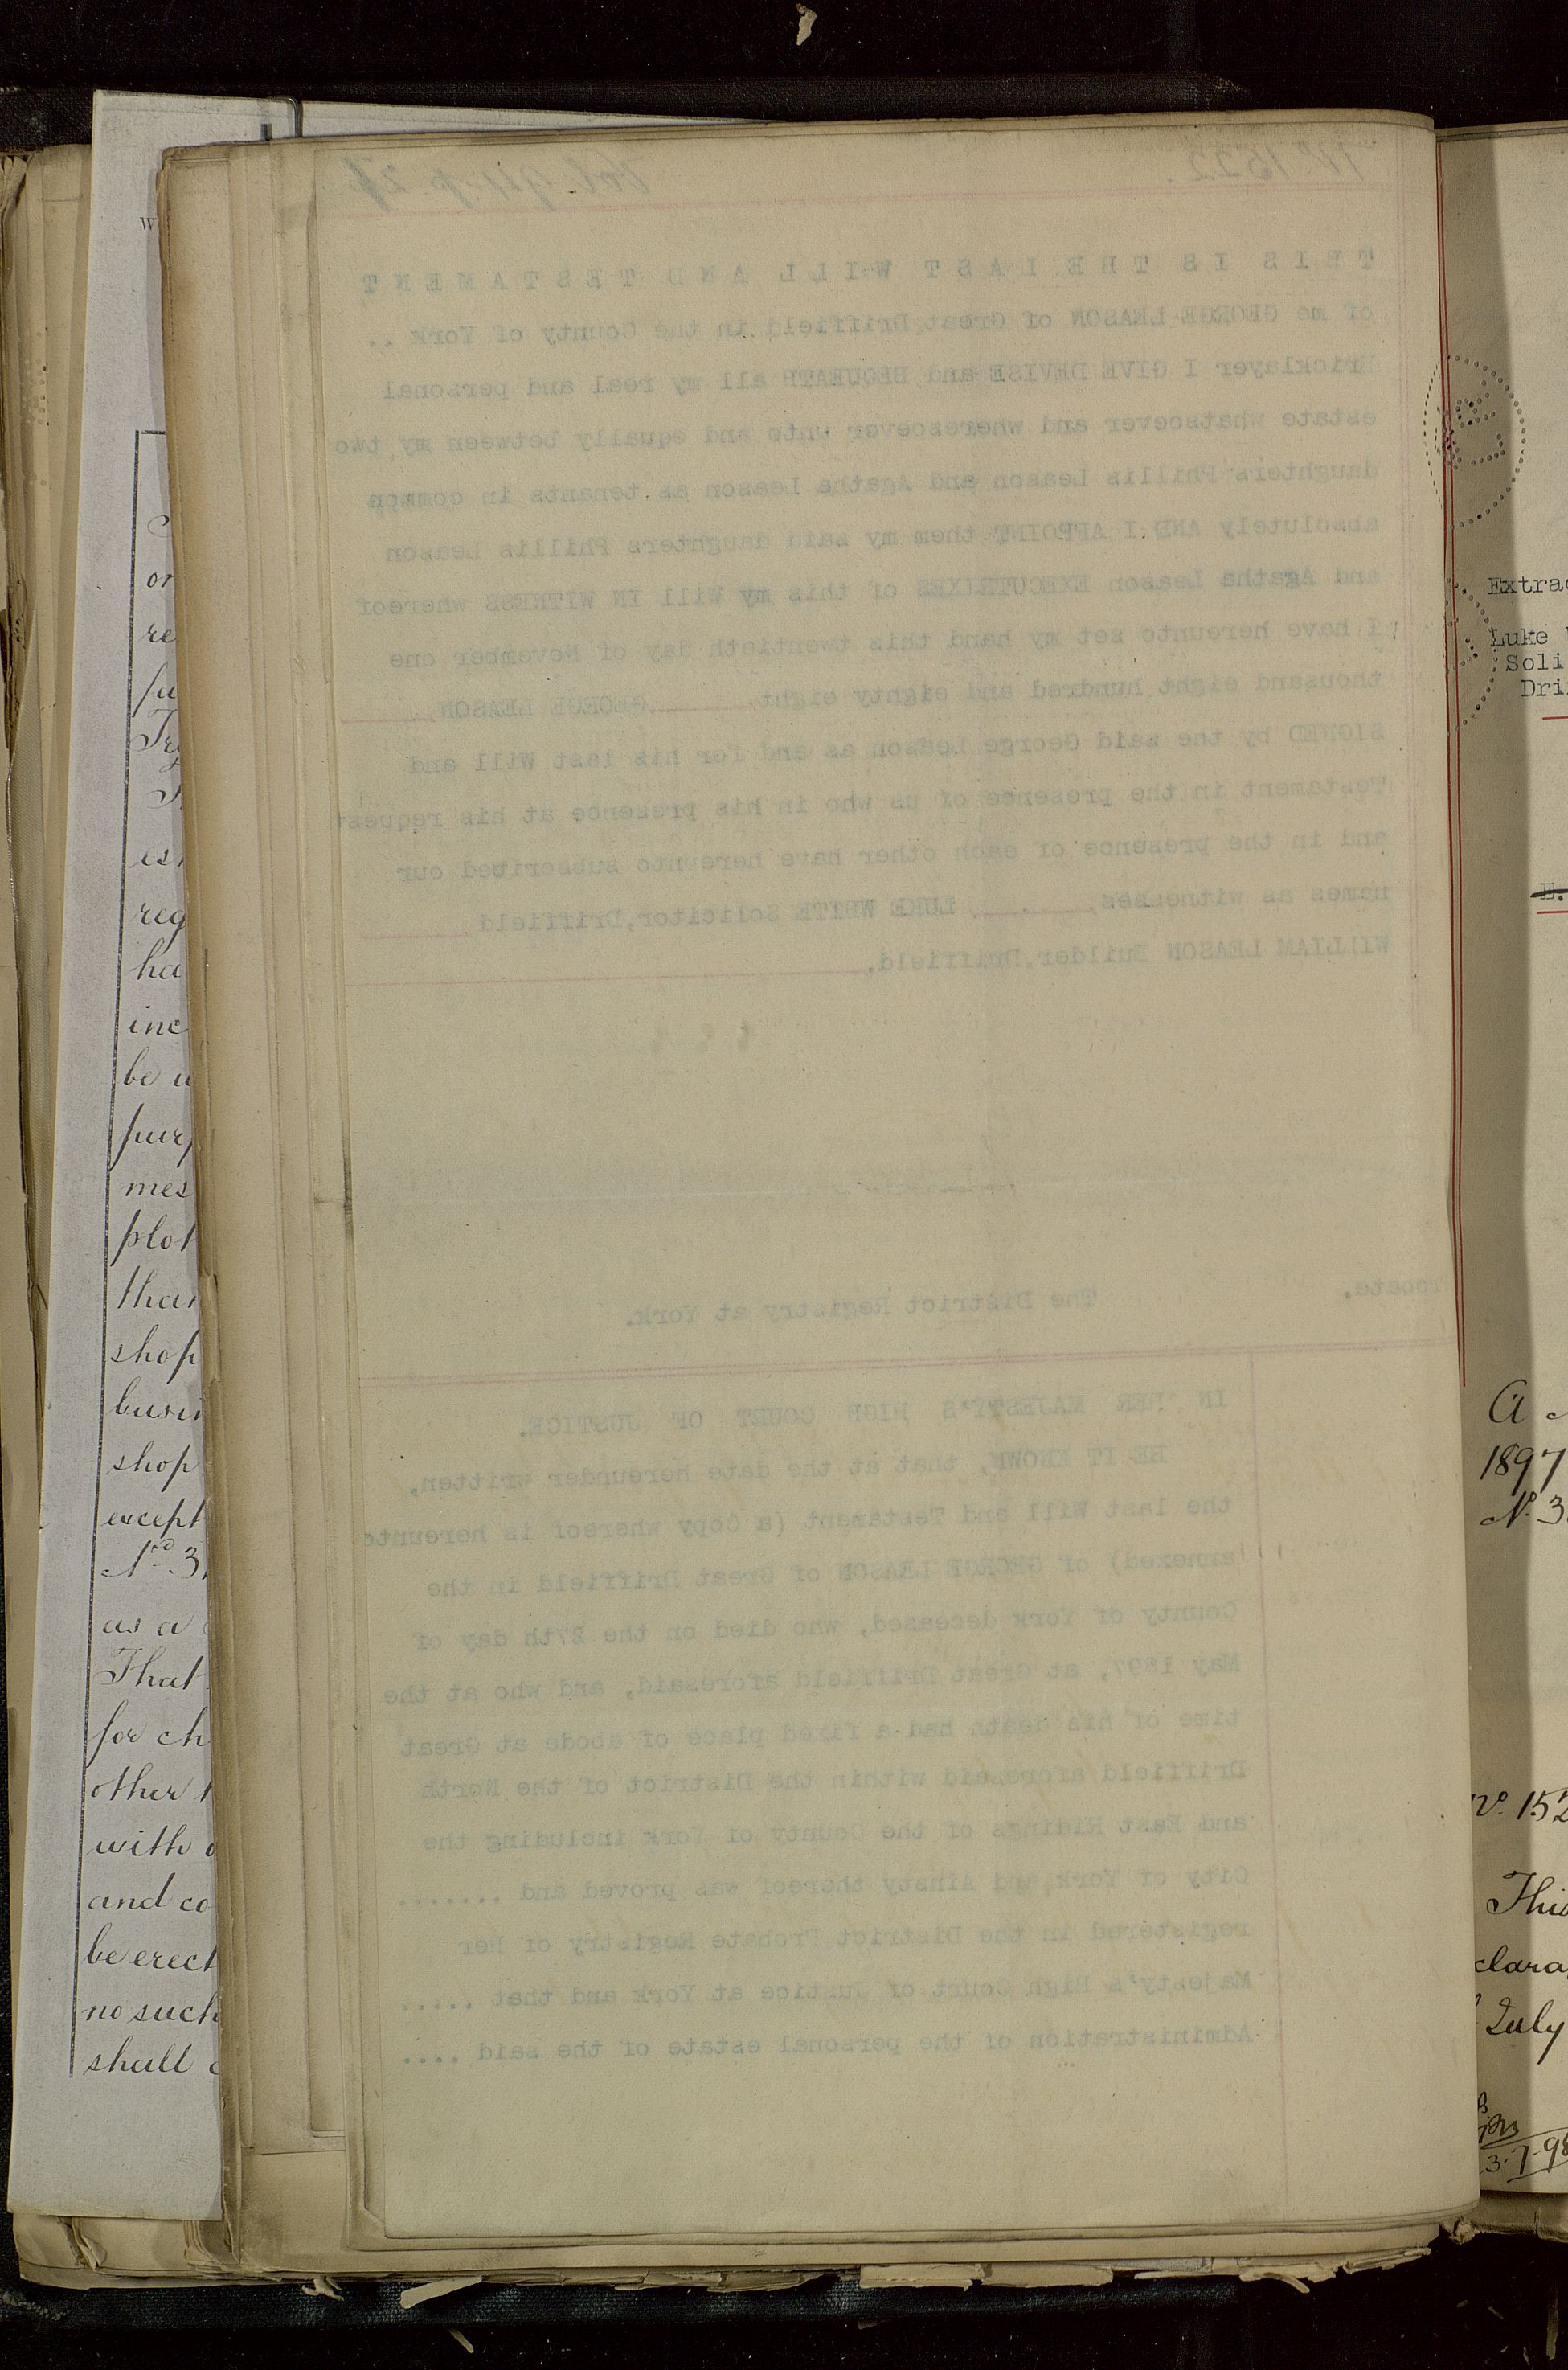 No. 1522.
THIS IS THE LAST WILL AND TESTAMENT
of me GEORGE LEASON of Great Driffield in the County of York ..
Bricklayer I GIVE DEVISE and BEQUEATH all my real and personal
estate whatsoever and wheresoever unto and equally between my two
daughters Phillis Leason and Agatha Leason as tenants in common
absolutely AND I APPOINT them my said daughters Phillis Leason
and Agatha Leason EXECUTRIXES of this my Will IN WITNESS whereof
I have hereunto set my hand this twentieth day of November one
thousand eight hundred and eighty eight, GEORGE LEASON
SIGNED by the said George Leason as and for his last Will and
Testament in the presence of us who in his presence at his request
and in the presence of each other have hereunto subscribed our
names as witnesses, LUKE WHITE Solicitor, Driffield
WILLIAM LEASON Builder, Driffield.
The District Registry at York.
IN HER MAJESTY'S HIGH COURT OF JUSTICE.
BE IT KNOWN, that at the date hereunder written,
the last Will and Testament (a Copy whereof is hereunto
annexed) of GEORGE LEASON of Great Driffield in the
County of York deceased, who died on the 27th day of
May 1897, at Great Driffield aforesaid, and who at the
time of his death had a fixed place of abode at Great
Driffield aforesaid within the District of the North
and East Ridings of the County of York including the
City of York and Ainsty thereof was proved and .......
registered in the District Probate Registry of Her
Majesty's High Court of Justice at York and that .....
Administration of the personal estate of the said ....
or
re
ha
be
mes
plot
shop
shop
except
No. 3
as a
That
for ch
other
with
and co
be erect
no such
shall
Extrac
Luke
Soli
Dri
1897
No. 3
No. 152
This
clara
July